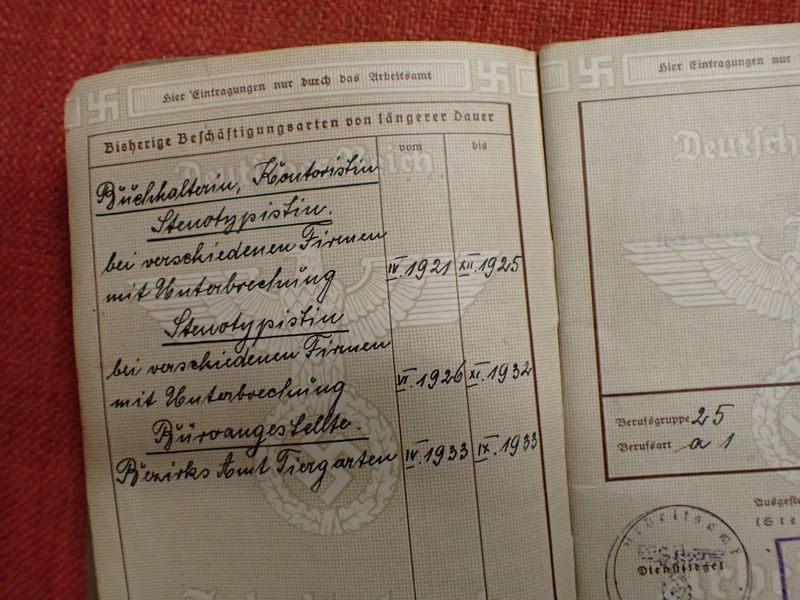 Hier Eintragungen nur durch das Arbeitsamt
Bisherige Beschäftigungsarten von längerer Dauer
vom bis
Buchhalterin, Kontoristin
Stenotypistin.
bei verschiedenen Firmen
mit Unterbrechung IV.1921 XII.1925
Stenotypistin
bei verschiedenen Firmen
mit Unterbrechung VI.1926 XI.1932
Büroangestellte.
Bezirks Amt Tiergarten IV.1933 IX.1933
Deutsches Reich
Hier Eintragungen nur
Deutsch
Berufsgruppe 25
Berufsart a 1
Ausgeste
(Ste
Arbeitsamt
Dienstsiegel